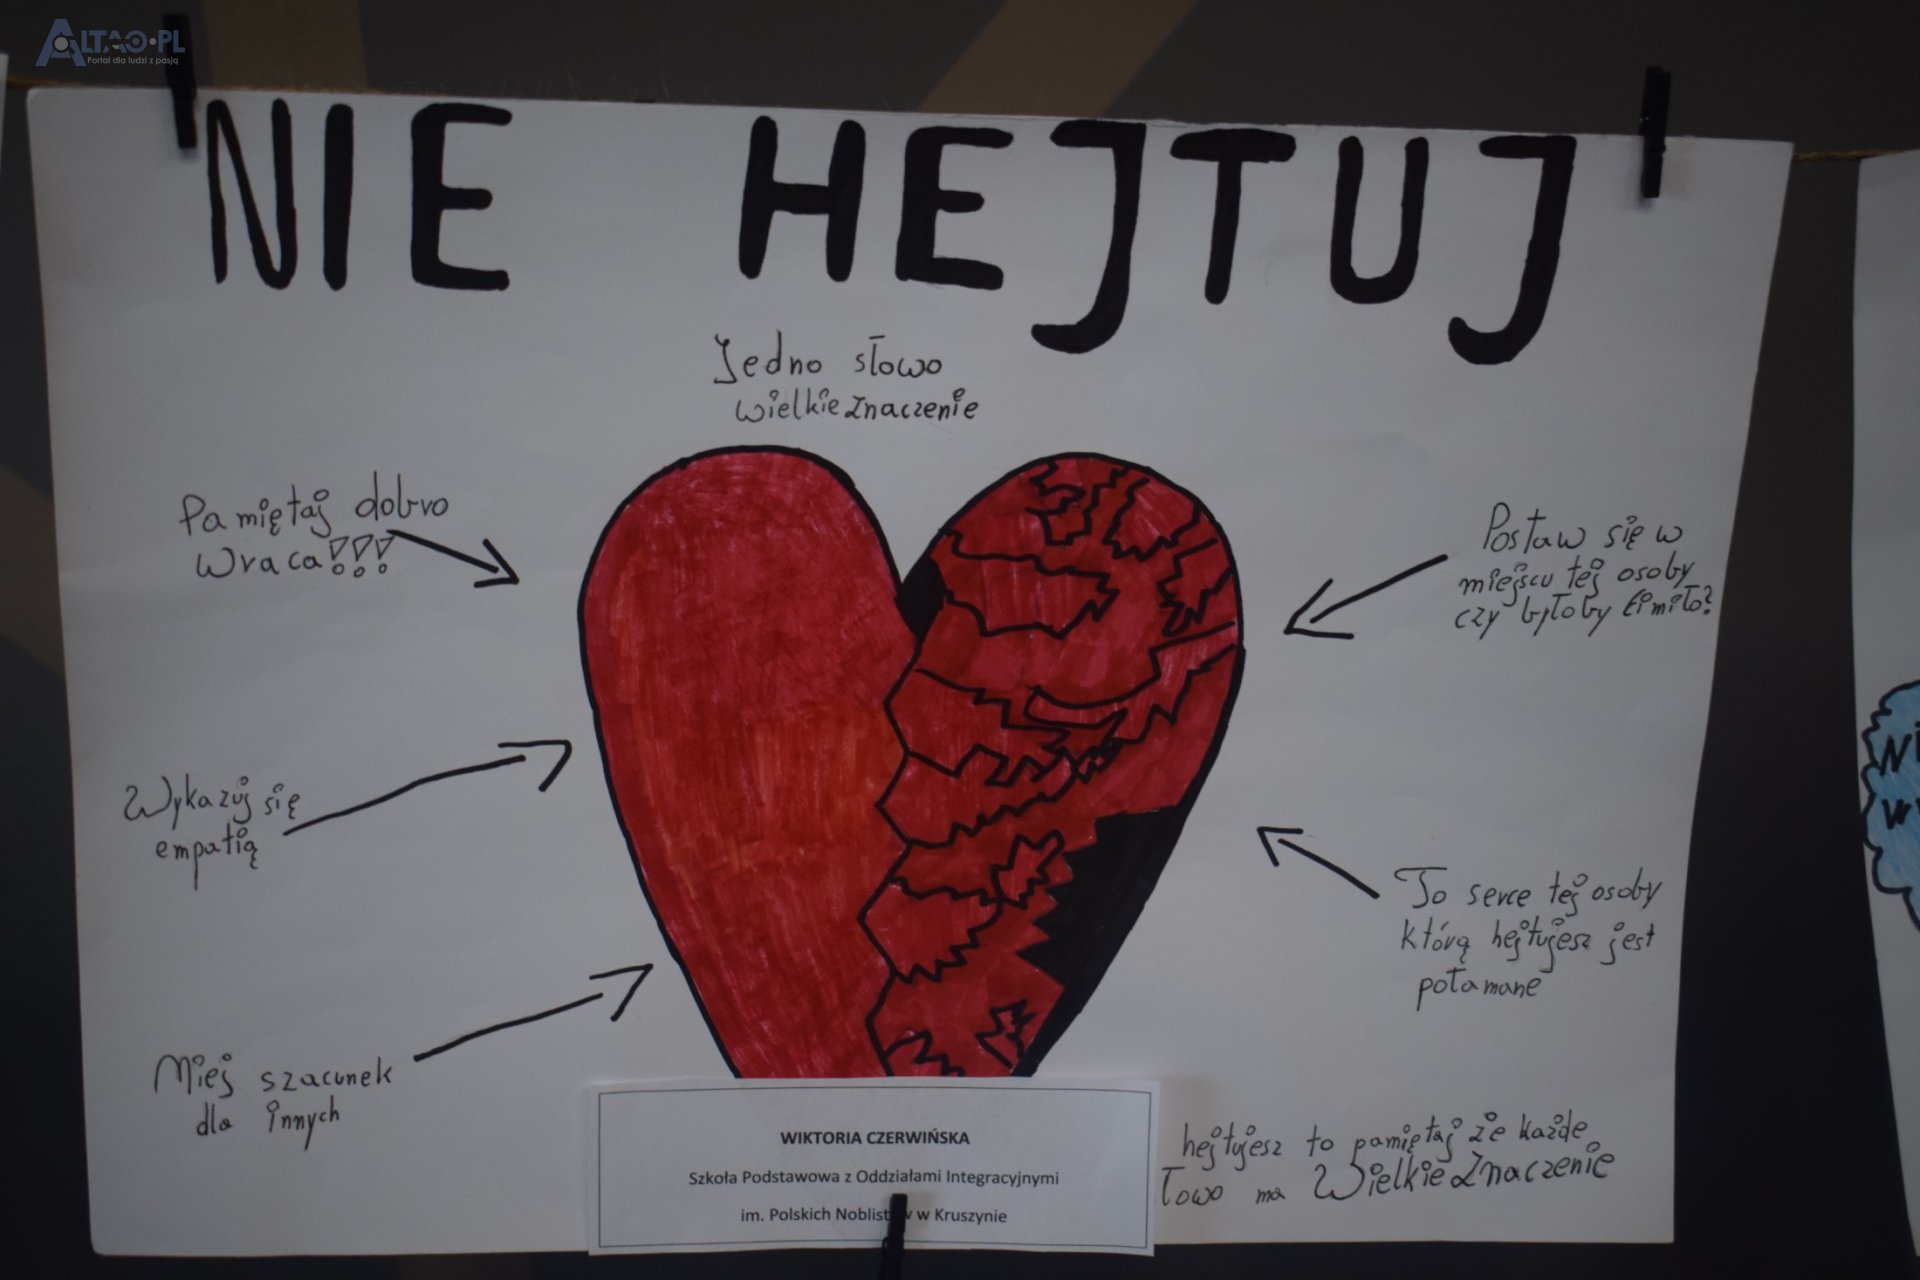 ALTAO.PL
Portal dla ludzi z pasją
NIE HEJTUJ
Jedno słowo
wielkie znaczenie
Pamiętaj dobro
wraca!!!
Postaw się w
miejscu tej osoby
czy byłoby Ci miło?
Wykazuj się
empatią
To serce tej osoby
którą hejtujesz jest
połamane
Miej szacunek
dla innych
hejtujesz to pamiętaj że każde
łowo ma Wielkie Znaczenie
WIKTORIA CZERWIŃSKA
Szkoła Podstawowa z Oddziałami Integracyjnymi
im. Polskich Noblistów w Kruszynie